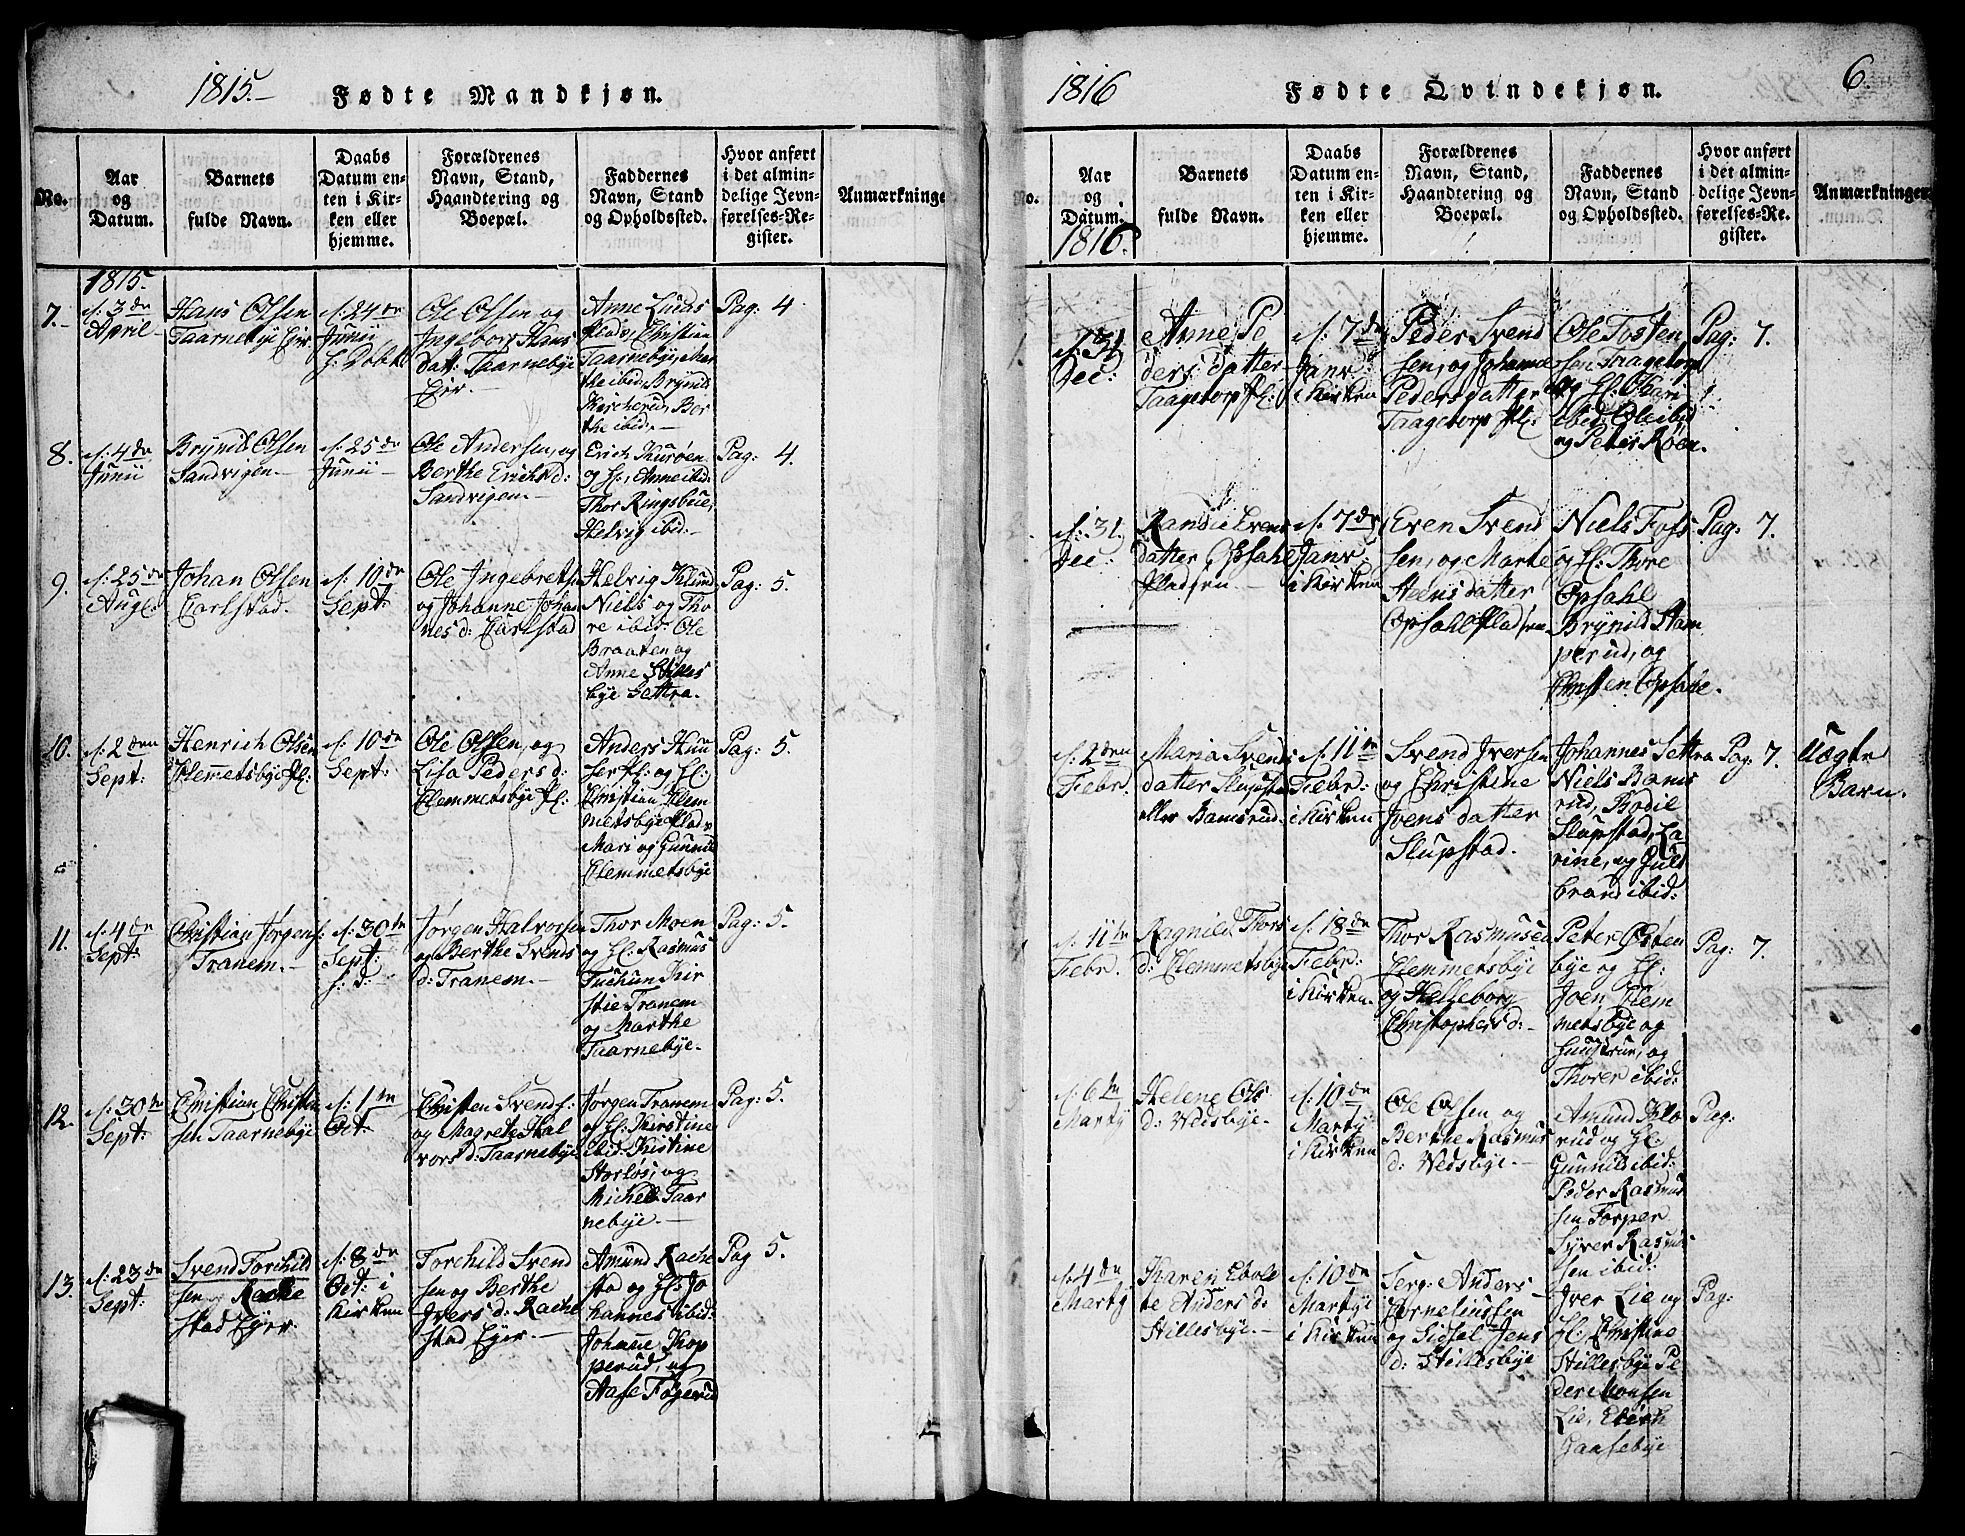 1815.-
Fødte Mandkjøn.
No.
Aar
og
Datum.
Barnets
fulde Navn.
Daabs
Datum en-
ten i Kir-
ken eller
hjemme.
Forældrenes
Navn, Stand,
Haandtering og
Boepæl.
Faddernes
Navn, Stand
og Opholdssted.
Hvor anført
i det almin-
delige Jevn-
førelses-Re-
gister.
Anmærkninge
1815.
7.-
d: 3 dn
April
Hans Olsen
Taarnebye Eier
d: 24 dn
Junii
Ole Olsen og
Ingeborg Hans
dat: Taarnebye
Eier.-
Anne Lucas
Christian
Taarnebye, Mar
the ibid, Brynild
Kircherud, Ber
the ibid,-
Pag: 4
8.
d: 4 dn
Junii
Brynild Olsen
Sandvigen-
d: 25 dn
Junii
Ole Andersen, og
Berthe Erichsd:
Sandvigen.-
Erich Kurøen
og H:, Anne ibid:
Thor Ringsbue,
Helvig ibid:-
Pag: 4.
9.
d: 25 dn
Aug:
Johan Olsen
Carlstad.
d: 10 dn
Sept:
Ole Ingebretsn
og Johanne Johan
nesd: Carlstad
Helvig Klund
Niels og Tho
re ibid: Ole
Braaten og
Anne Stilles
bye Settra.
Pag: 5.
10.
d: 2 den
Sept:
Henrich Olsen
Klemmetsbye Pl:
d: 10 dn
Sept:
Ole Olsen, og
Lisa Peders d:
Clemmetsbye Pl:
Anders Huu
ser Pl: og H:
Christian Klem
metsbye Plads
Mari og Gunnild
Clemmetsbye
Pag: 5.
11.
d: 4 dn
Sept:
Christian Jørgens
Tranem.-
d: 30 te
Sept:
h: d:
Jørgen Halvorsen
og Berthe Svends
d: Tranem.-
Thor Moen
og H: Rasmus
Tuchun Kir
stie Tranem
og Marthe
Taarnebye.
Pag: 5.
12.
d: 30 te
Sept:
Christian Christen
sen Taarnebye
d: 1 te
Oct:
Christen Svends:
og Magrete Hal
vors d: Taarnebye
Jørgen Tranem
og H: Kirstine
ibid: Kistine
Storløs, og
Michel Taar
nebye.-
Pag: 5.
13.
d: 23 dn
Sept:
Svend Torchild
sen Rache
stad Eyer.
d: 8 dn
Oct: i
Kirken
Torchild Svend
sen og Berthe
Ivers d: Rache
stad Eyer.-
Amund Rache
stad og H: Jo
hannes ibid:
Johanne Kop
perud, og
Aase Fogerud
Pag 5.
1816
Fødte Qvindekjøn.
6.
No.
Aar
og
Datum.
1816.
Barnets
fulde Navn.
Daabs
Datum en-
ten i Kir-
ken eller
hjemme.
Forældrenes
Navn, Stand,
Haandtering og
Boepæl.
Faddernes
Navn, Stand
og Opholdssted.
Hvor anført
i det almin-
delige Jevn-
førelses-Re-
gister.
Anmærkninger
1.
d: 31
Dec:
Anne Pe
ders datter
Taagetorp Pl:
d: 7 dn
Janr
i Kirken
Peder Svend
sen, og Johanne
Peders datter
Taagetorp Pl:
Ole Tosten
sen Taagetorp
og H: Kari
ibid Ole ibid
og Peter Røen.
Pag: 7.
2.
d: 31.
Dec:
Randie Evens
datter Opsahl
Pladsen
d: 7 dn
Janr
i Kirken
Even Svend
sen, og Marte
Steens datter
Opsahl Pladsen
Niels Tofs
og H: Thore
Opsahl
Brynild Stam
perud, og
Christen Opsahl.
Pag: 7.
d: 2 den
Febr.
Maria Svends
datter Slupstad
eller Bamsrud.
d: 11 te
Febr:
i Kirken
Svend Iversen
og Christine
Joens datter
Slupstad.
Johannes Settra
Niels Bams
rud, Bodil
Slupstad, Ca
rine, og Guld
brand ibid:
Pag: 7.
Uægte
Barn.
d: 11 te
Febr.
Ragnild Thors
d: Clemmetsbye
d: 18 dn
Febr:
i Kirken.
Thor Rasmusen
Clemmetsbye
og Helleborg
Christophers d:-
Peter Østen
bye og H:
Joen Clem
metsbye og
Guustrun, og
Thorer ibid:
Pag: 7.
d: 6 te
Marty
Helene Ols
d: Vedsbye.-
d: 10 dn
Marty
i Kirken
Ole Olsen og
Berthe Rasmus
d: Vedsbye.-
Amund Klo
rud og H:
Gunnild ibid:
Peder Rasmus
sen Torper
Syver Rasmus
sen ibid:
Pag:
d: 4 dn
Marty
Karen Ebole
te Anders d:
Stillesbye.-
d: 10 dn
Martye
i Kirken
Serg: Anders
Corneliussen
og Sidsel Jens
d: Stillesbye
Iver Lie og
H: Christine
Stillesbye Pe
der Monsen
Lie, Erich
Gaasebye
Pag: